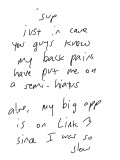 'sup
just in case
you guys know
my back pain
have put me on
a semi-hiatus
also, my big app
is on Link 3
since I was so
slow